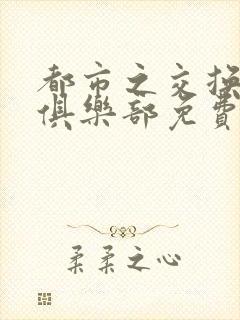 都市之交换
俱樂部免費
柔柔之心